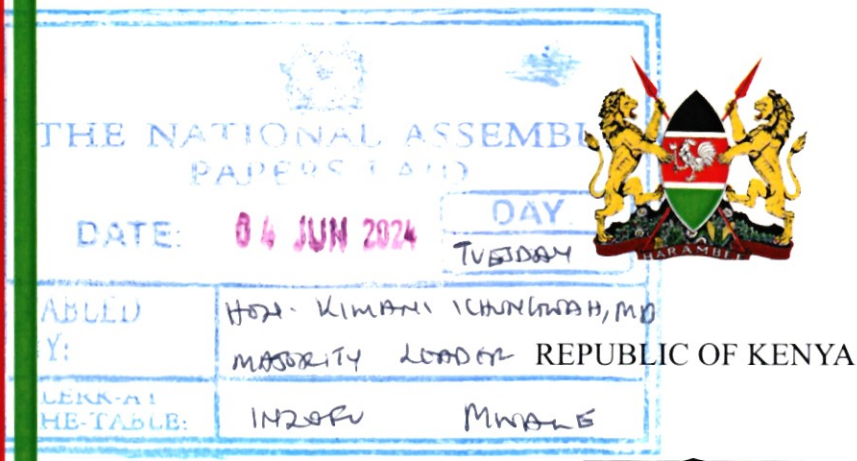 THE NATIONAL ASSEMBL
PAPERS LAID
DATE: 04 JUN 2024
DAY
TUESDAY
HARAMBEE
ABLED
Y:
HON. KIMANI ICHUNGWAH, MP
MAJORITY LEADER
REPUBLIC OF KENYA
CLERK-AT
HE-TABLE:
INZOFU MWALE